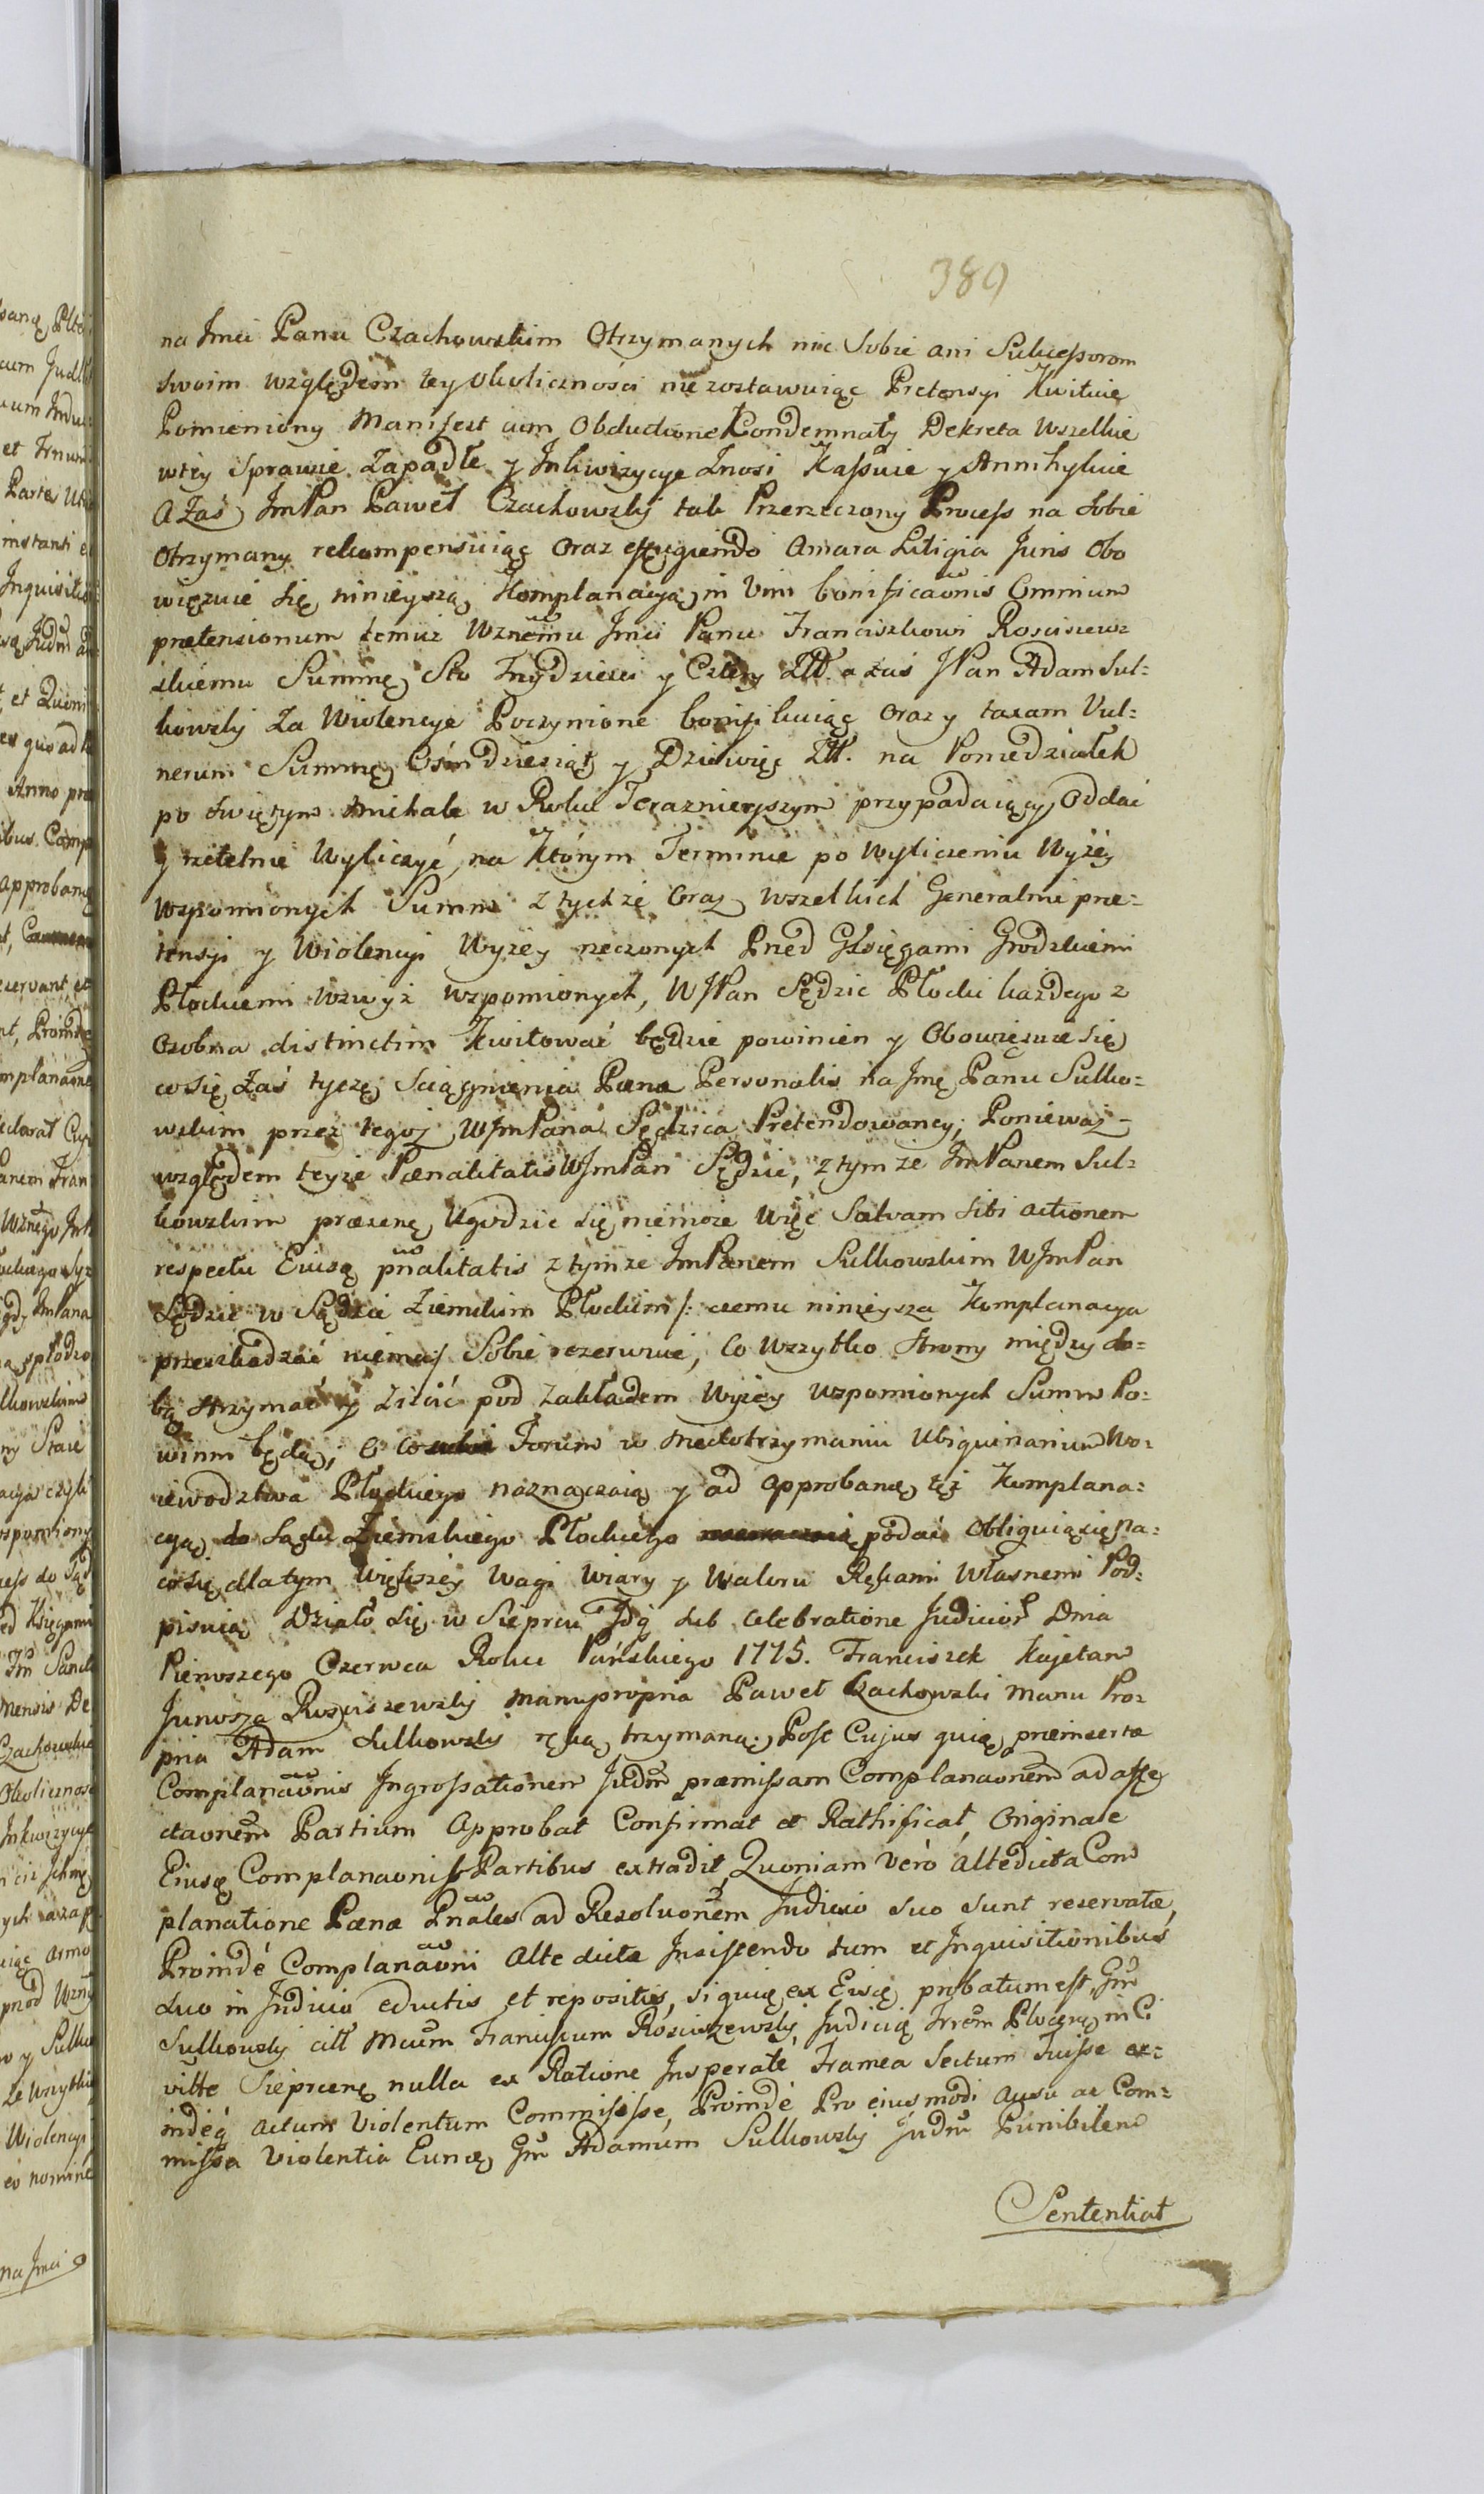 389
na Jmci Panu Czachowskim Otrzymanych nic Sobie ani Sukceſsorom
Swoim względem tey Okoliczności nie zostawuiąc Pretensyi Kwituie
Pomieniony Manifest cum Obductione Kondemnaty Dekreta Wszelkie
wtey Sprawie Zapadłe y Inkwizycye Znosi Kaſsuie y Annihyluie
A Zaś JmPan Paweł Czachowsky tak Przerzeczony Proceſs na Sobie
Otrzymany rekompensuiąc Oraz effugiendo Amara Litigia Juris Obo
więzuie Się ninieyszą Komplanacyą in Vim bonificaonis Omnium
prætensionum temuż Wznemu Jmci Panu Franciszkowi Rosciszew:
skiemu Summę Sto Trzydzieści y Cztery Złł. a zaś JPan Adam Sul:
kowsky Za Wiolencye Poczynione bonifikuiąc Oraz y taxam Vul:
nerum Summę Ośmdziesiąt y Dziewięc Złł. na Poniedziałek
po Swiętym Michale w Roku Teraznieyszym przypadaiący Oddać
y rzetelnie Wyliczyć, na Którym Terminie po Wyliczeniu Wyżey
Wspomionych Summ z tychże Oraz Wszelkich Generalnie pre:
tensyi y Wiolencyi Wyżey rzeczonych Przed Xsięgami Grodzkiemi
Płockiemi wzwyż wspomionych, WJPan Sędzic Płocki każdego z
Osobna distinctim Kwitować będzie powinien y Obowięzuie się
co się Zaś tyczę Sciągnienia Pœna Personalis na Jmę Panu Sulko:
wskim przez tegoż WJmPana Sędzica Pretendowaney, Ponieważ
względem teyże Pœnalitatis WJmPan Sędzic, z tymże JmPanem Sul:
kowskim præsenę Ugodzic się niemoże Więc Salvam Sibi actionem
respectu Eiusą pnalitatis z tymże JmPanem Sulkowskim WJmPan
Sędzic w Sądzie Ziemskim Płockim /: czemu ninieysza Komplanacya
przeszkadzać niema:/ Sobie rezerwuie, Co Wszytko Strony między so:
bą Strzymać y Ziścić pod Zakładem Wyżey Wspomionych Summ Po:
winni będą, O Co Forum w Niedotrzymaniu Ubiquinarium Wo:
iewodztwa Płockiego naznaczaią y ad Approbanę tęż Komplana:
cyą do Sądu Ziemskiego Płockiego podać Obliguią się Na:
co Się dla tym Więkſzéy Wagi Wiary y Waloru Rękami Własnemi Pod:
pisuią Działo Się w Siepriu Jdą Sub Celebratione Judicior Dnia
Pierwszego Czerwca Roku Pańskiego 1775. Franciszek Kajetan
Junosza Rosciszewsky Manupropria Paweł Czachowski Manu Pro:
pria Adam Sulkowsky ręką trzymaną; Post Cujus quię præinsertæ
Complanaonis Ingroſsationem Judm præmiſsam Complanaonem ad affe
ctaonem Partium Approbat Confirmat et Rathificat, Originale
Eiusę Complanaonis Partibus extradit, Quoniam verò altedicta Com
planatione Pœnæ Pnales ad Resoluonem Judicio Suo Sunt reservatæ,
Proindé Complanaoni Alte dictæ Insistendo tum et Inquisitionibus
Suo in Judicio eductis et repositis, Si quię ex Eisię probatum est, Gm
Sulkowsky citt Mcum Franciscum Rosciszewsky, Judicię Trrem Plocenę in Ci
vitte Sieprcenę nulla ex Ratione Insperate Framea Sectum Fuiſse ex:
indéq actum Violentum Commisiſse, Proindé Pro eiusmodi Ausu ac Com:
miſsa Violentia Eunię Gm Adamum Sulkowsky Judm Punibilem
Sententiat